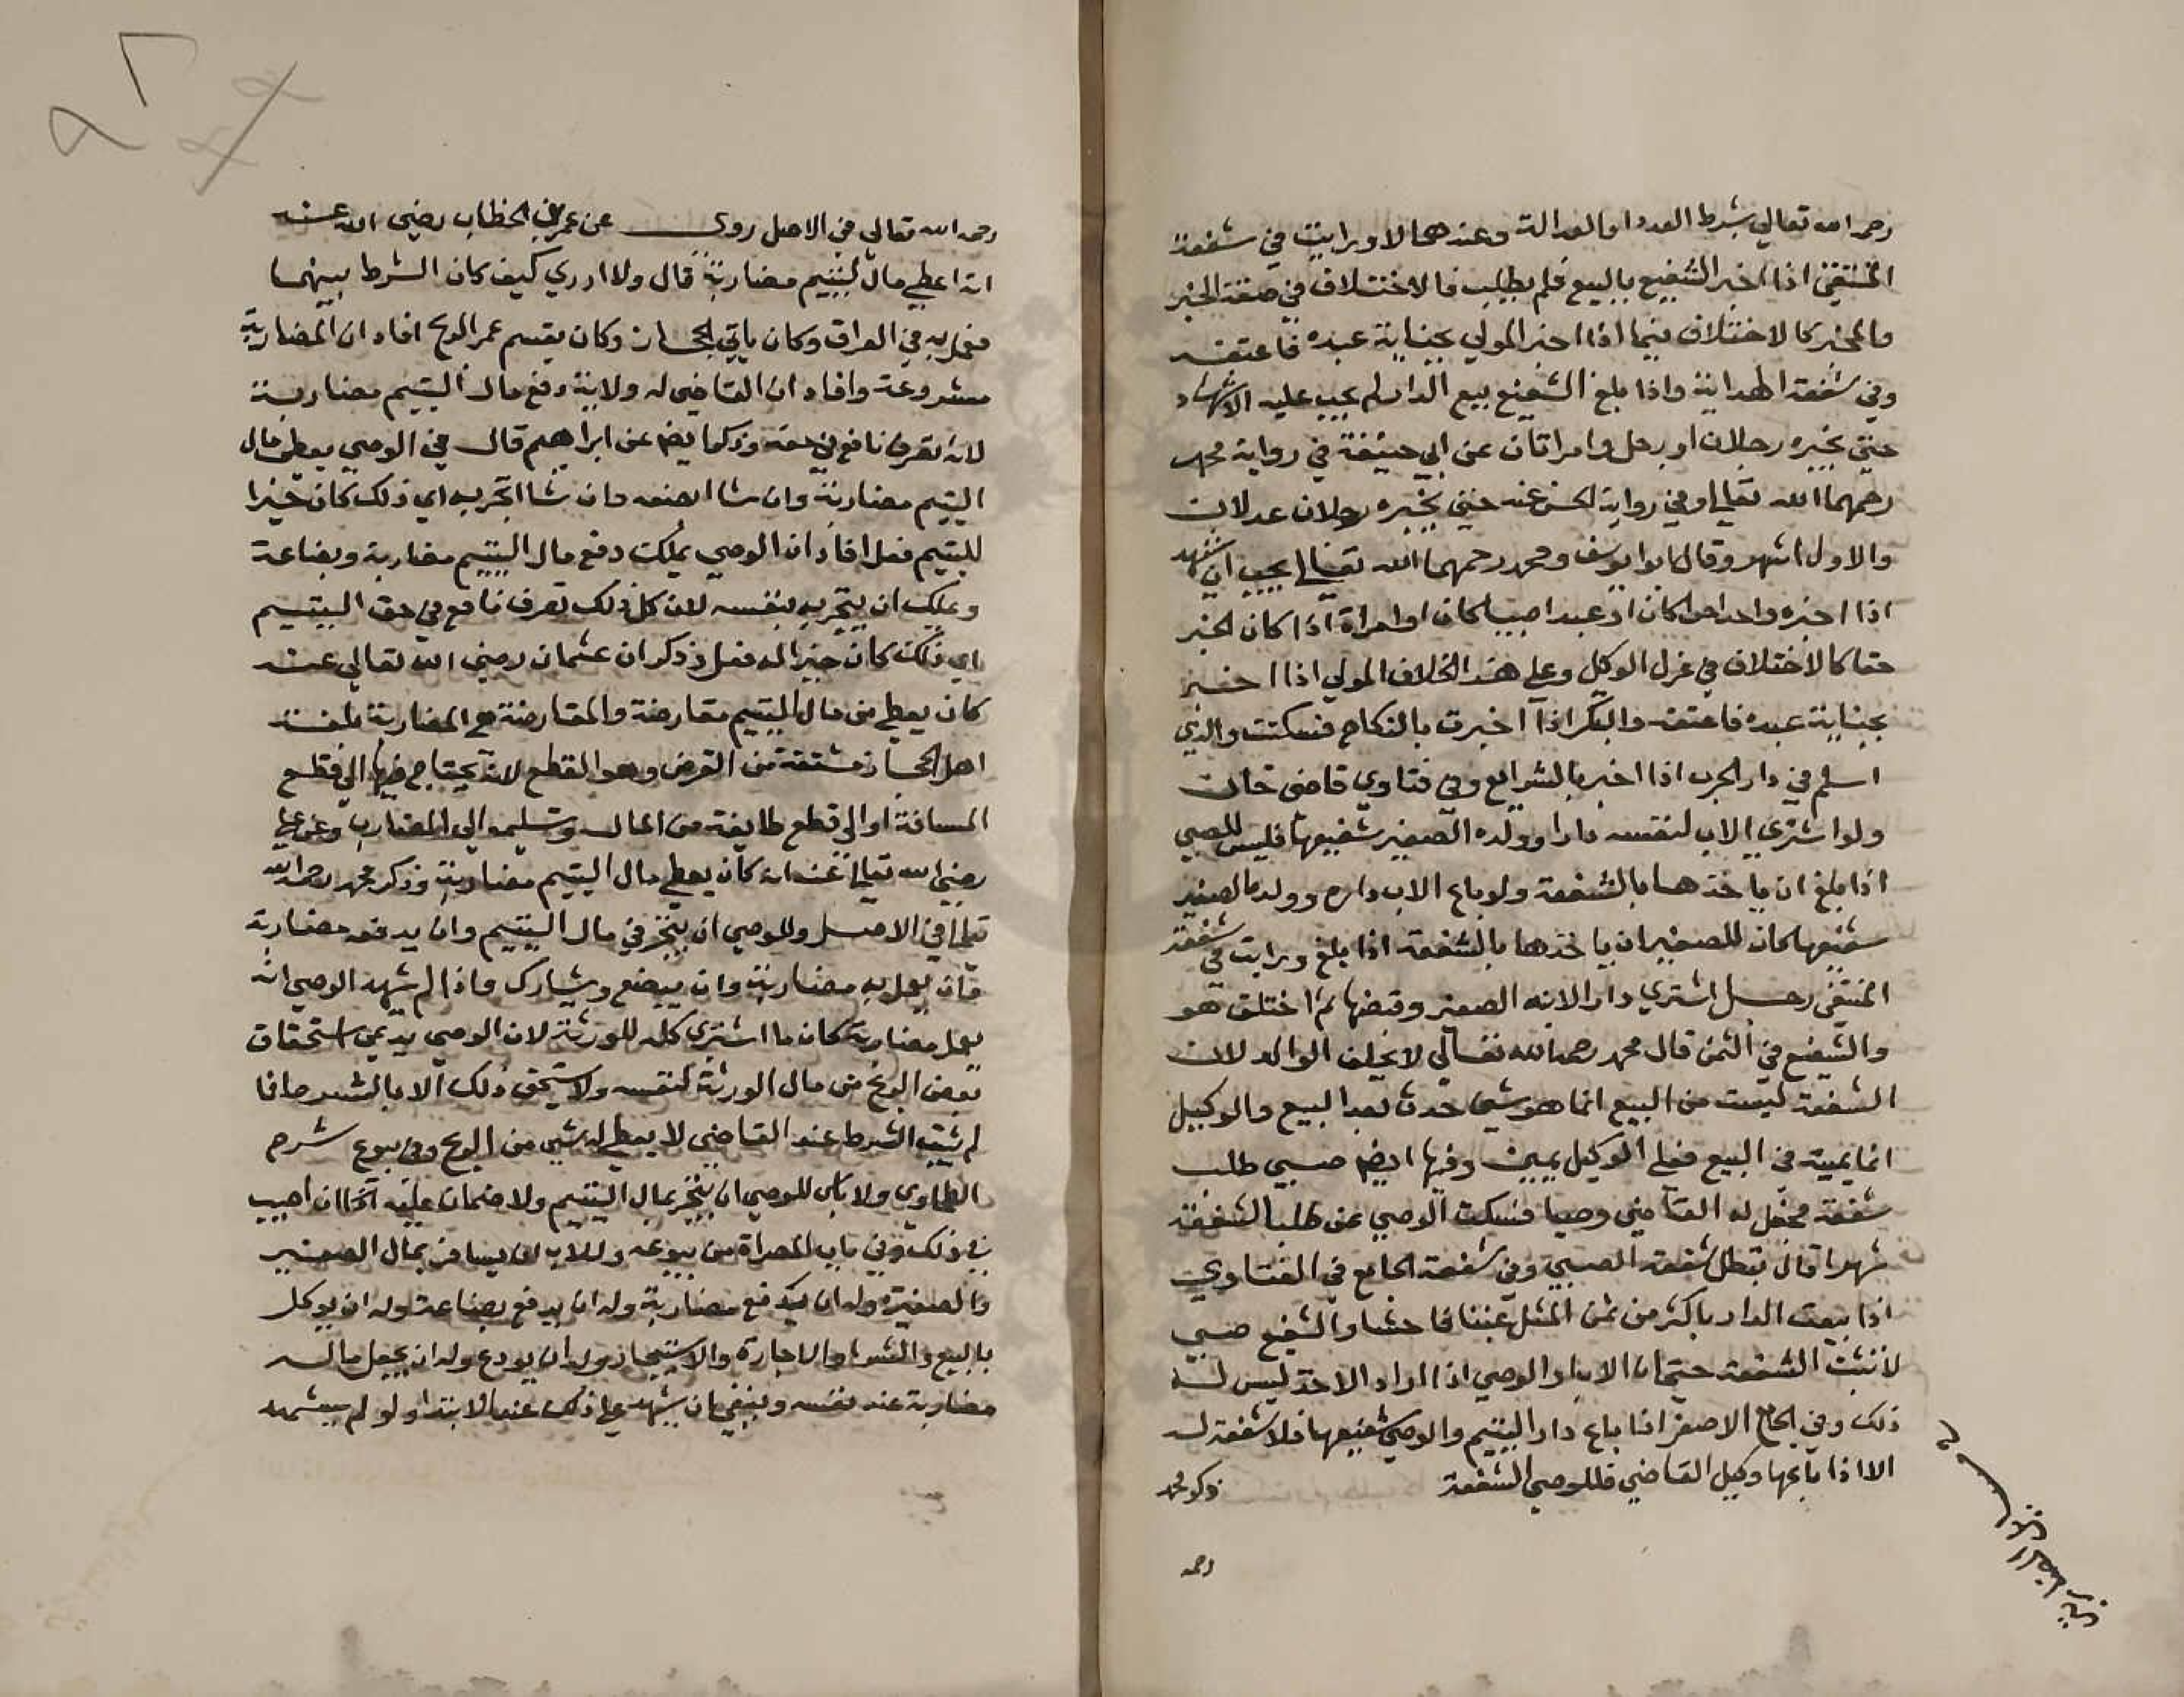 رحمه الله تعالي بشرط العدد او العدالة وعندهما لا ورايت في شفعة
المنتقي اذا اخبر الشفيع بالبيع فلم يطلب فالاختلاف في صفة الخبر
والمخبر كالاختلاف فيما اذا اخبر المولي بجناية عبده فاعتقه
وفي شفعة الهداية واذا بلغ الشفيع بيع الدار لم يجب عليه الاشهاد
حتي يخبره رجلان او رجل وامراتان عن ابي حنيفة في رواية محمد
رحمهما الله تعالي وفي رواية الحسن عنه حتي يخبره رجلان عدلان
والاول اشهر وقال ابو يوسف ومحمد رحمهما الله تعالي يجب ان يشهد
اذا اخبره واحد حرا كان او عبدا صبيا كان او امراة اذا كان الخبر
حقا كالاختلاف في عزل الوكيل وعلي هذا الخلاف المولي اذا اخبر
بجناية عبده فاعتقه والبكر اذا اخبرت بالنكاح فسكتت والذي
اسلم في دار الحرب اذا اخبر بالشرايع وفي فتاوي قاضي خان
ولو اشتري الاب لنفسه دارا وولده الصغير شفيعها فليس للصبي
اذا بلغ ان ياخذها بالشفعة ولو باع الاب داره وولده الصغير
شفيعها كان للصغير ان ياخذها بالشفعة اذا بلغ ورايت في شفعة
المنتقي رجل اشتري دارا لابنه الصغير وقبضها ثم اختلف هو
والشفيع في الثمن قال محمد رحمه الله تعالي لا يحلف الوالد لان
الشفعة ليست من البيع انما هو شي حدث بعد البيع والوكيل
انما يمينه في البيع فعلي الوكيل يمين وفيها ايضا صبي طلب
شفعة فجعل له القاضي وصيا فسكت الوصي عن طلب الشفعة
شهرا قال تبطل شفعة الصبي وفي شفعة الجامع في الفتاوي
اذا بيعت الدار باكثر من ثمن المثل غبنا فاحشا والشفيع صبي
لا تثبت الشفعة حتي ان الاب او الوصي اذا اراد الاخذ ليس له
ذلك وفي الجامع الاصغر اذا باع دار اليتيم والوصي شفيعها فلا شفعة له
الا اذا باعها وكيل القاضي فللوصي الشفعة ذكر محمد
رحمه
رحمه الله تعالي في الاصل روي عن عمر بن الخطاب رضي الله عنه
انه اعطي مال ليتيم مضاربة قال ولا ادري كيف كان الشرط بينهما
فعمل به في العراق وكان ياتي الحجاز وكان يقسم عمر الربح افاد ان المضاربة
مشروعة وافاد ان القاضي له ولاية دفع مال اليتيم مضاربة
لانه تصرف نافع في حقه وذكر ايضا عن ابراهيم قال في الوصي يعطي مال
اليتيم مضاربة وان شا ابضعه وان شا اتجر به اي ذلك كان خيرا
لليتيم فعل افاد ان الوصي يملك دفع مال اليتيم مضاربة وبضاعة
ويملك ان يتجر به بنفسه لان كل ذلك تصرف نافع في حق اليتيم
اي ذلك كان خيرا له فعل وذكر ان عثمان رضي الله تعالي عنه
كان يعطي من مال اليتيم مقارضة والمقارضة هي المضاربة بلغة
اهل الحجاز مشتقة من القرض وهو القطع لانه يحتاج فيها الي قطع
المسافة او الي قطع طايفة من المال وتسليمه الي المضارب وعن علي
رضي الله تعالي عنه انه كان يعطي مال اليتيم مضاربة وذكر محمد رحمه الله
تعالي في الاصل وللوصي ان يتجر في مال اليتيم وان يدفعه مضاربة
وان يعمل به مضاربة وان يبضع ويشارك واذا لم يشهد الوصي انه
يعمل مضاربة كان ما اشتري كله للورثة لان الوصي يدعي استحقاق
بعض الربح من مال الورثة لنفسه ولا يستحق ذلك الا بالشرط فاذا
لم يثبت الشرط عند القاضي لا يعطي له شي من الربح وفي بيوع شرح
الطحاوي ولا باس للوصي ان يتجر بمال اليتيم ولا ضمان عليه
في ذلك وفي باب المصراة من بيوعه وللاب ان يسافر بمال الصغير
والصغيرة وله ان يدفع مضاربة وله ان يدفع بضاعة وله ان يوكل
بالبيع والشرا والاجارة والاستيجار وله ان يودع وله ان يجعل ماله
مضاربة عند نفسه وينبغي ان يشهد علي ذلك عند الابتدا ولو لم يشهد